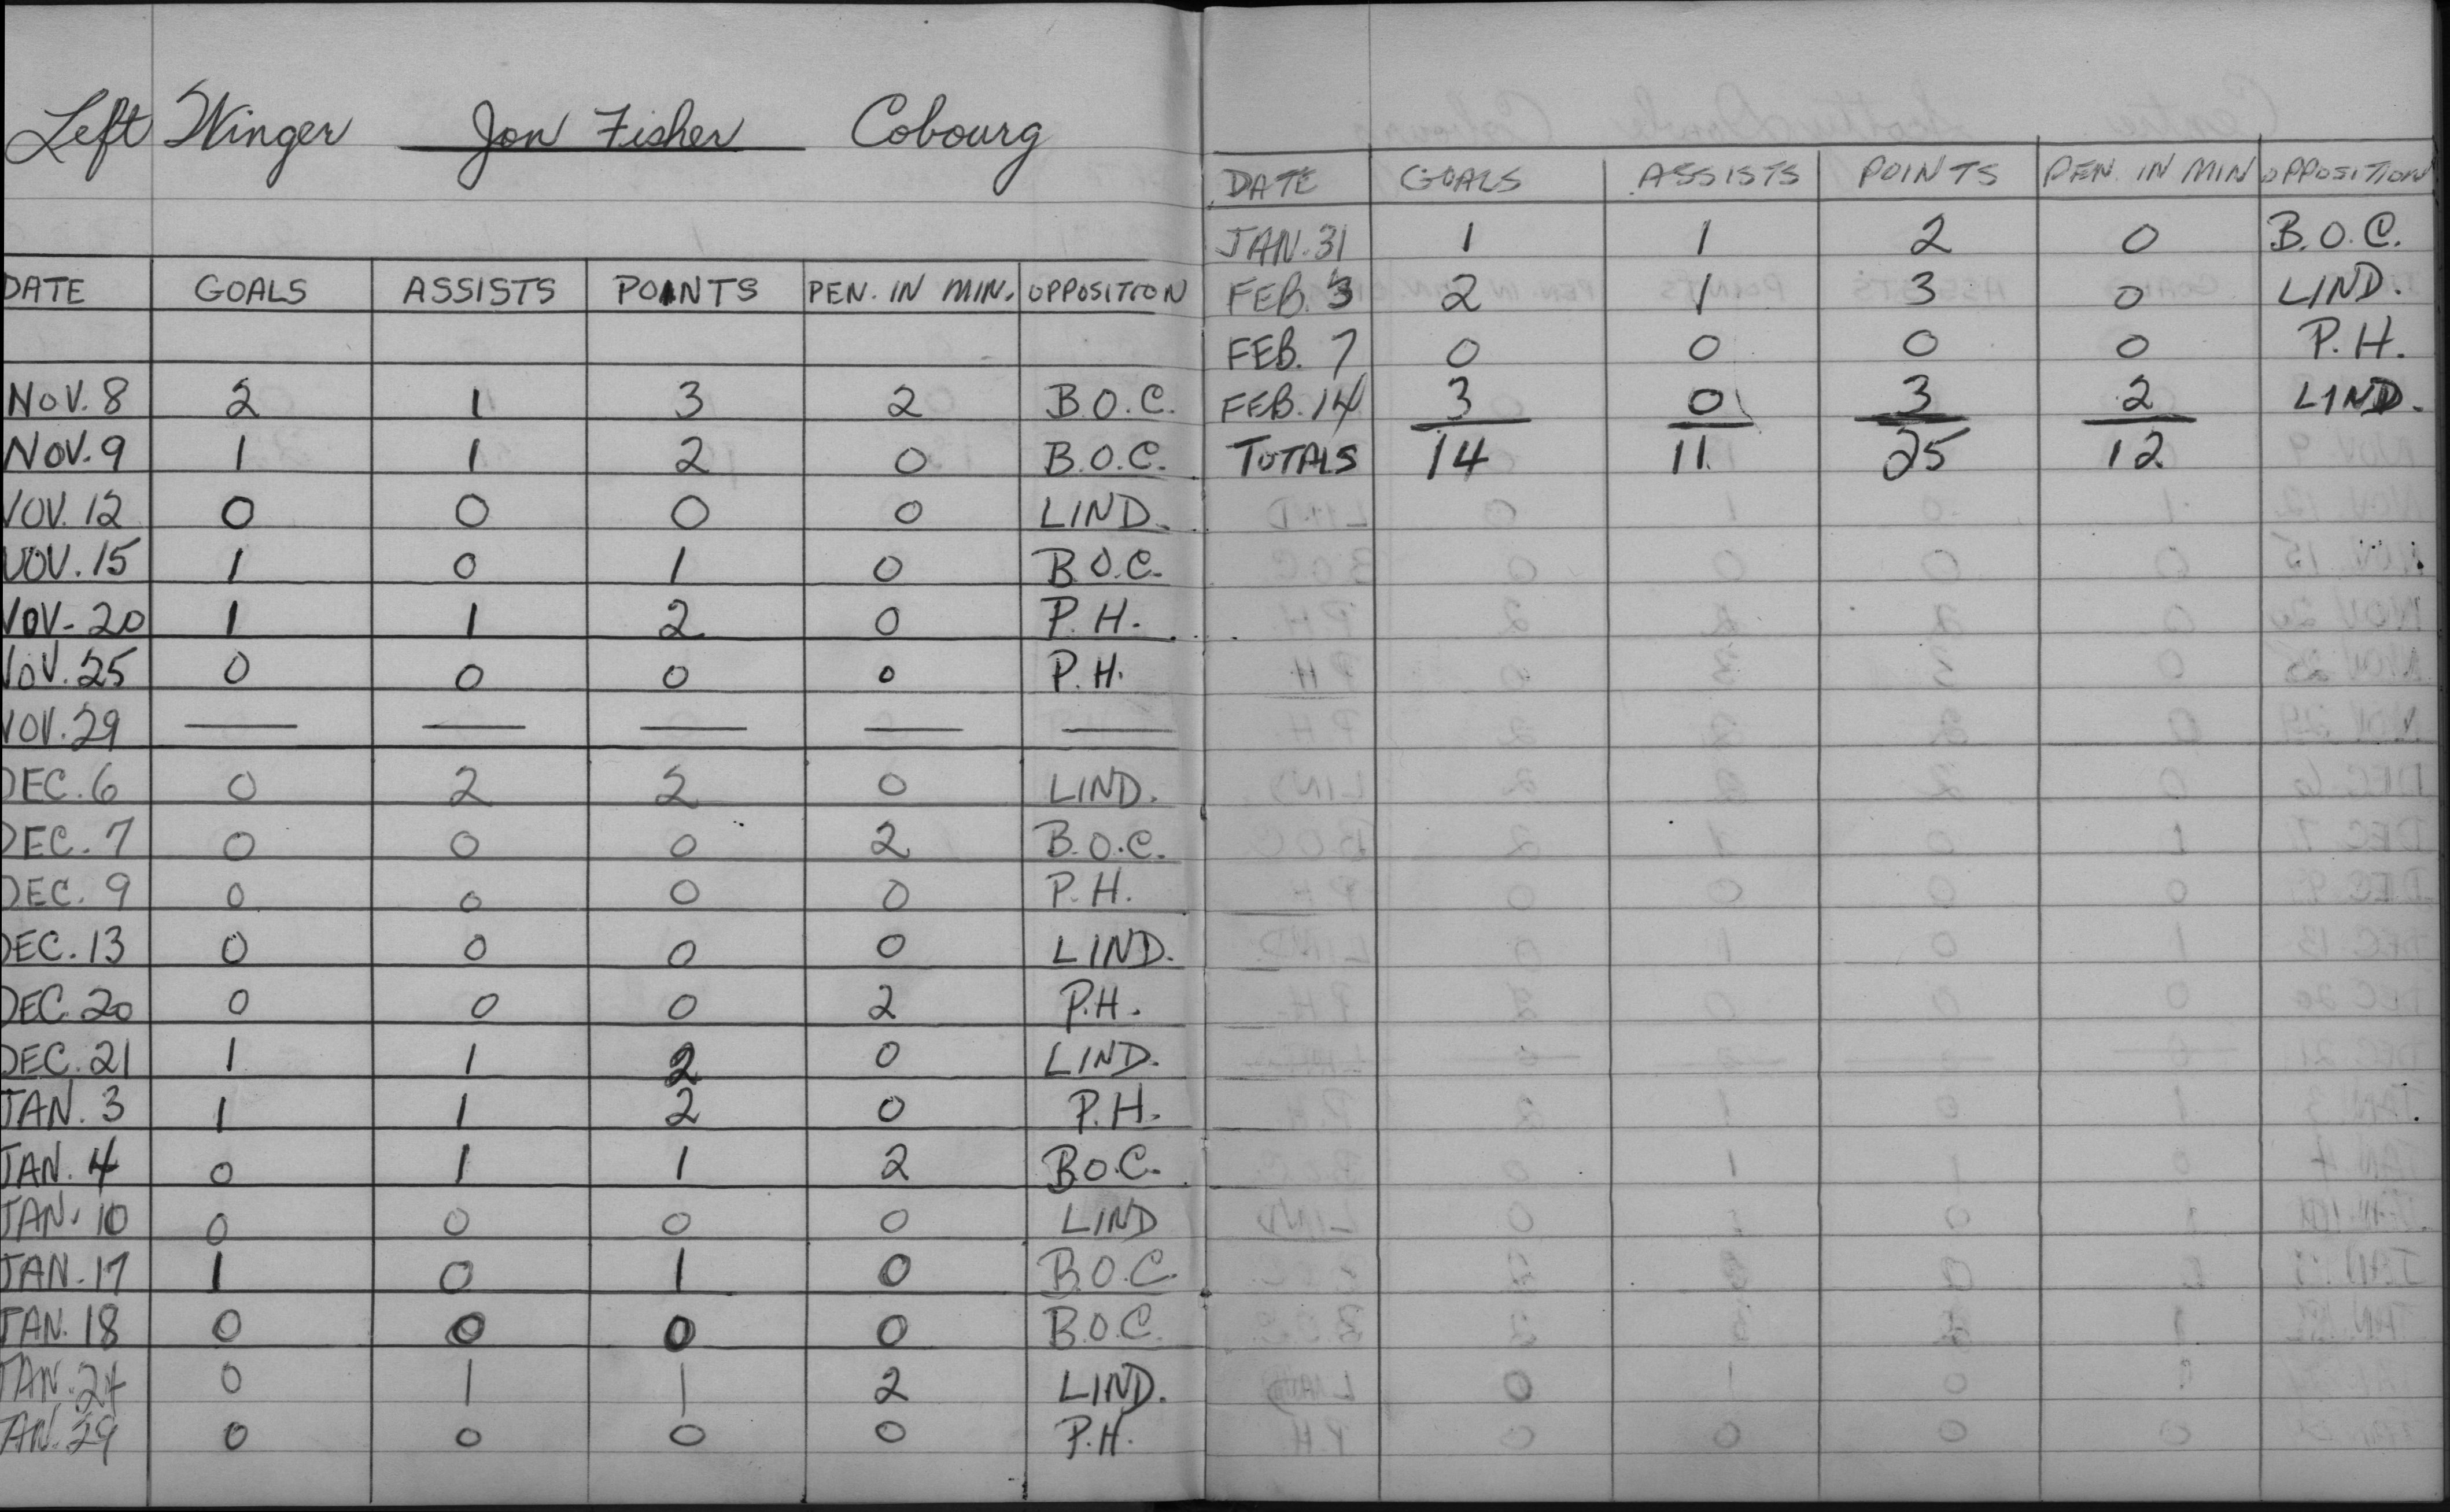 Left Winger Jon Fisher Cobourg
DATE GOALS ASSISTS POINTS PEN. IN MIN. OPPOSITION
NOV. 8 2 1 3 2 B.O.C.
NOV. 9 1 1 2 0 B.O.C.
NOV. 12 0 0 0 0 LIND.
NOV. 15 1 0 1 0 B.O.C.
NOV. 20 1 1 2 0 P.H.
NOV. 25 0 0 0 0 P.H.
NOV. 29 — — — — —
DEC. 6 0 2 2 0 LIND.
DEC. 7 0 0 0 2 B.O.C.
DEC. 9 0 0 0 0 P.H.
DEC. 13 0 0 0 0 LIND.
DEC. 20 0 0 0 2 P.H.
DEC. 21 1 1 2 0 LIND.
JAN. 3 1 1 2 0 P.H.
JAN. 4 0 1 1 2 B.O.C.
JAN. 10 0 0 0 0 LIND
JAN. 17 1 0 1 0 B.O.C.
JAN. 18 0 0 0 0 B.O.C.
JAN. 24 0 1 1 2 LIND.
JAN. 29 0 0 0 0 P.H.
DATE GOALS ASSISTS POINTS PEN. IN MIN OPPOSITION
JAN. 31 1 1 2 0 B.O.C.
FEB. 3 2 1 3 0 LIND.
FEB. 7 0 0 0 0 P.H.
FEB. 14 3 0 3 2 LIND.
TOTALS 14 11 25 12